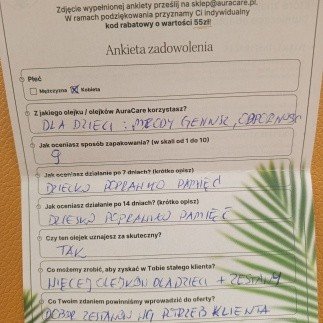 Zdjęcie wypełnionej ankiety prześlij na sklep@auracare.pl.
W ramach podziękowania przyznamy Ci indywidualny
kod rabatowy o wartości 55zł!
Ankieta zadowolenia
Płeć
Mężczyzna Kobieta
Z jakiego olejku / olejków AuraCare korzystasz?
DLA DZIECI : MŁODY GENIUSZ, ODPORNOŚĆ
Jak oceniasz sposób zapakowania? (w skali od 1 do 10)
9
Jak oceniasz działanie po 7 dniach? (krótko opisz)
DZIECKO POPRAWIŁO PAMIĘĆ
Jak oceniasz działanie po 14 dniach? (krótko opisz)
DZIECKO POPRAWIŁO PAMIĘĆ
Czy ten olejek uznajesz za skuteczny?
TAK
Co możemy zrobić, aby zyskać w Tobie stałego klienta?
WIĘCEJ OLEJKÓW DLA DZIECI + ZESTAWY
Co Twoim zdaniem powinniśmy wprowadzić do oferty?
DOBÓR ZESTAWÓW POTRZEB KLIENTA